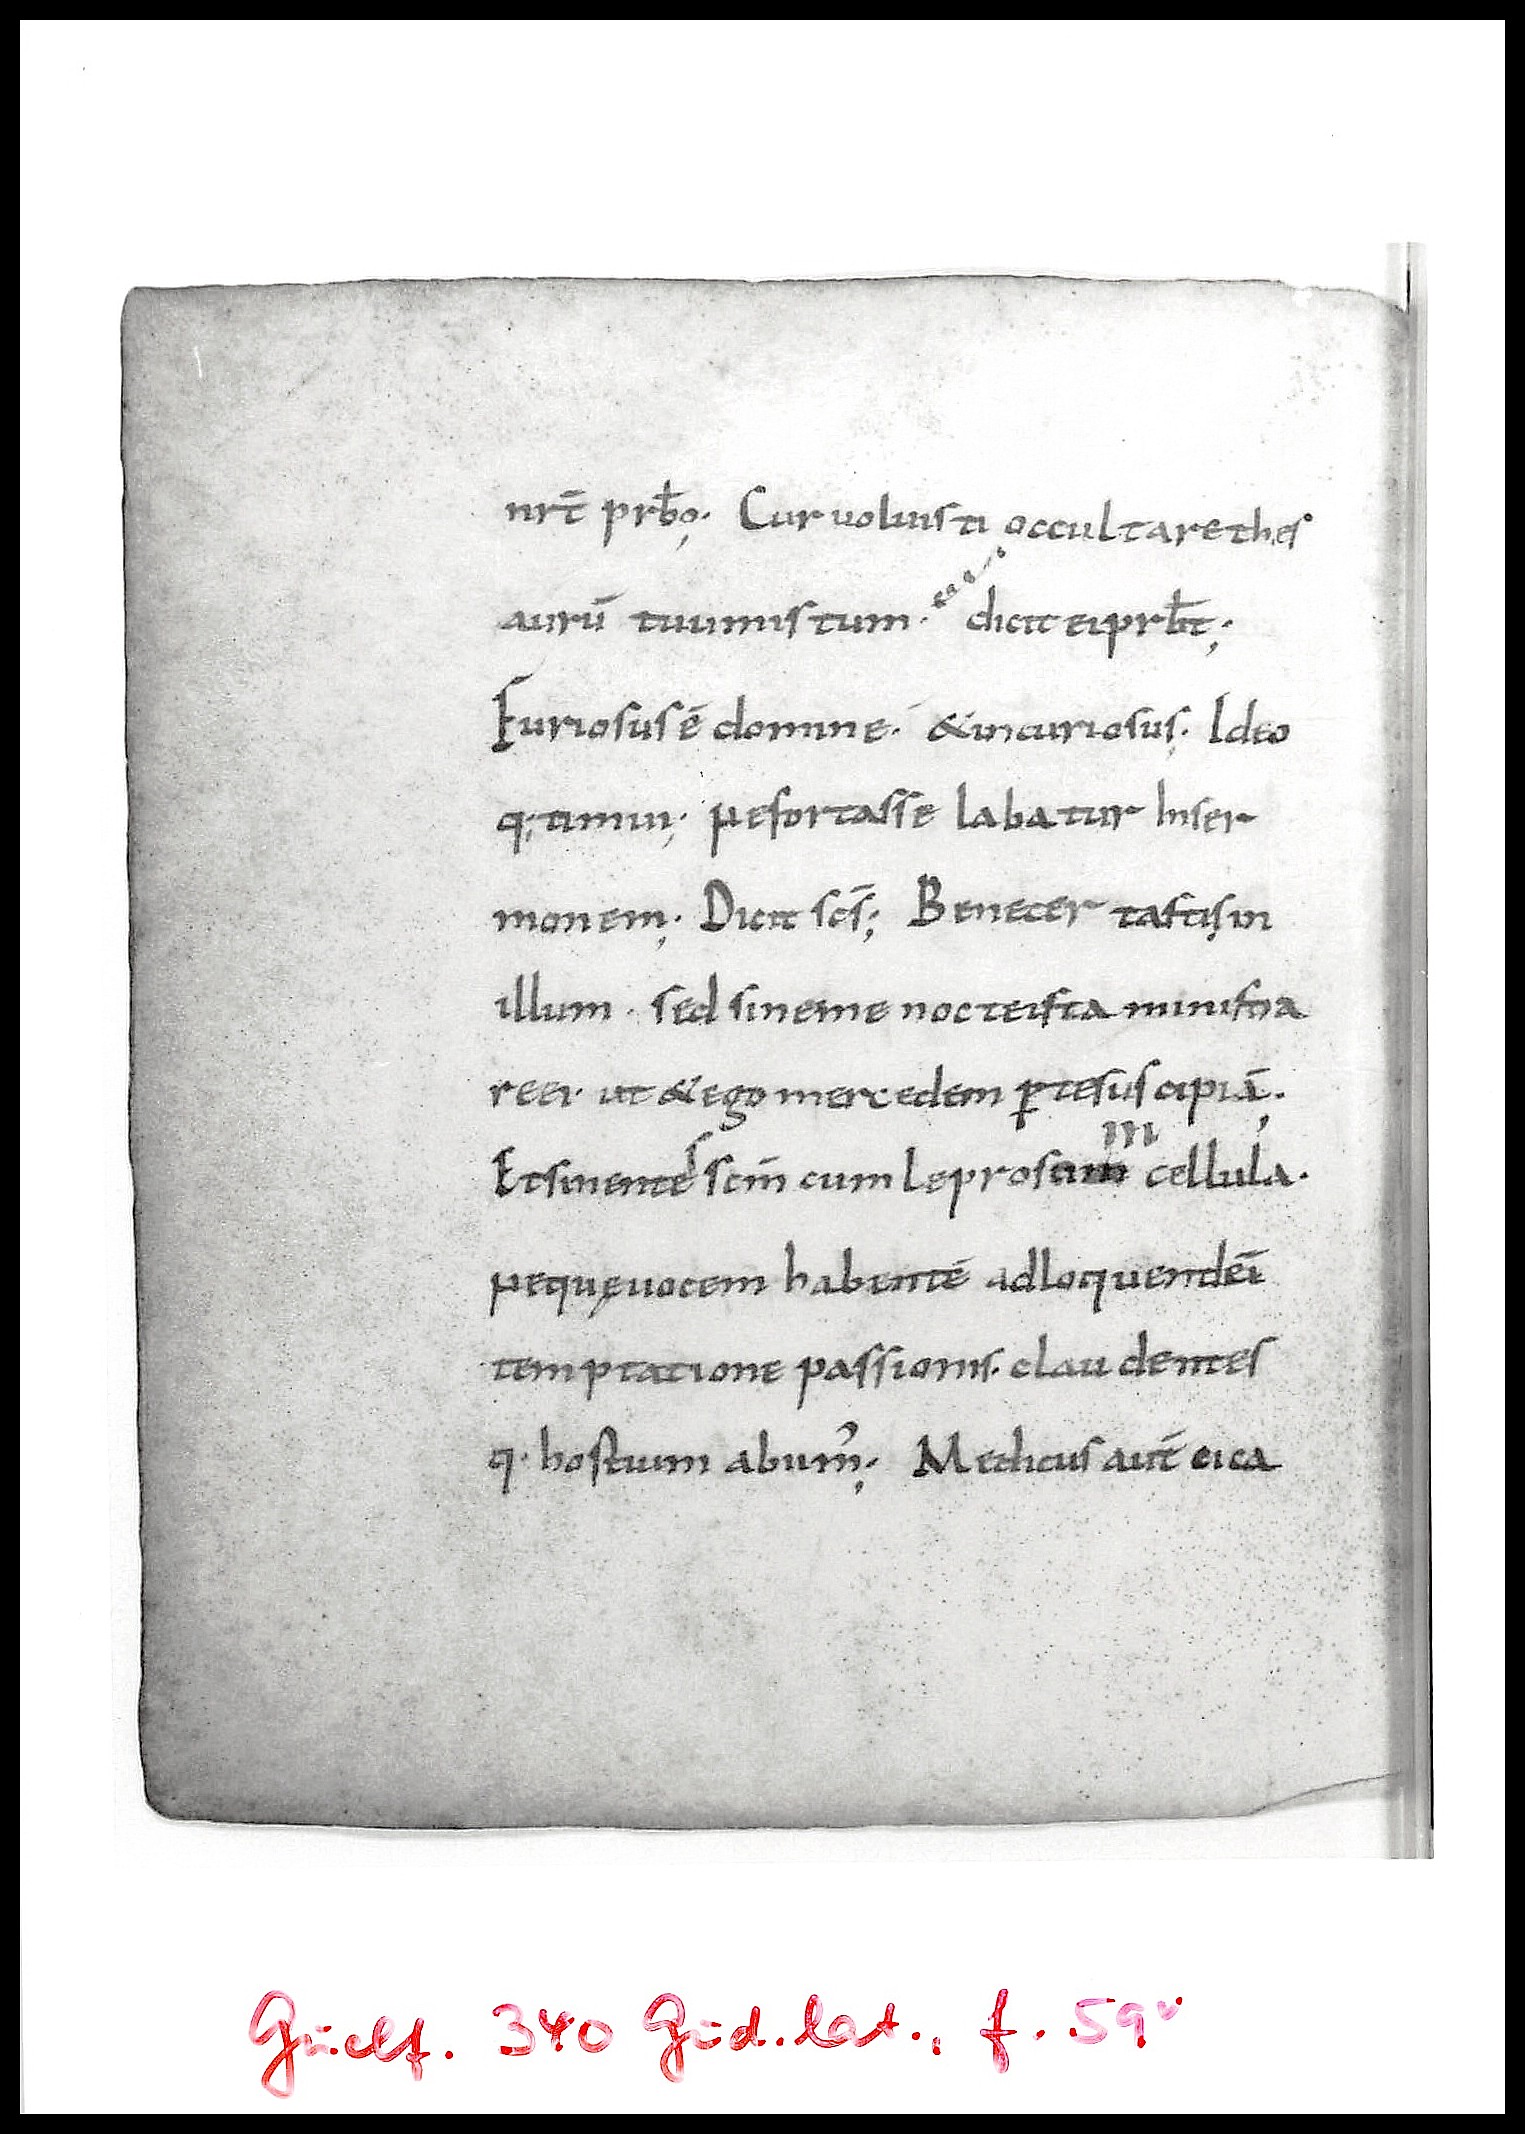 nrt̄ prb̄o; Cur uoluisti occultare thes
aurū tuum istum · dicit ei prb̄t;
Furiosus ē domine · & incuriosus; Ideo
q; timui; Ne fortasse labatur In ser
monem; Dicit sc̄s; Bene cer tastis in
illum · sed sine me nocte ista ministra
re ei · ut & ego mercedem p̲ te suscipiā;
Et sinentes sc̄m cum leproso in cellula ·
Neque uocem habentē ad loquendēī
temptatione passionis · claudentes
q· hostium ab um̄; Medicus aut̄ eica
Guelf. 340 Gud. lat., f. 59v